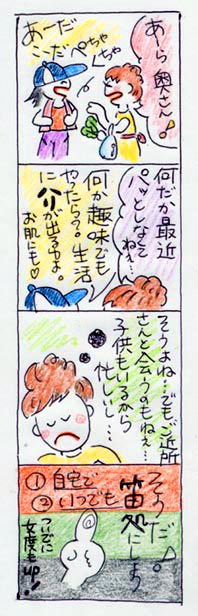 あーら奥さん。
あーだ
こーだ
ぺちゃ
くちゃ
何だか最近
パッとしなくて
ねぇ…
何か趣味でも
やったら？生活
に ハリが出るわよ。
お肌にも♡
そうよね…でもご近所
さんと会うのもねぇ…
子供もいるから
忙しいし…
そうだ♪
笛処にしよう
①自宅で
②いつでも
ついでに
女度もup!